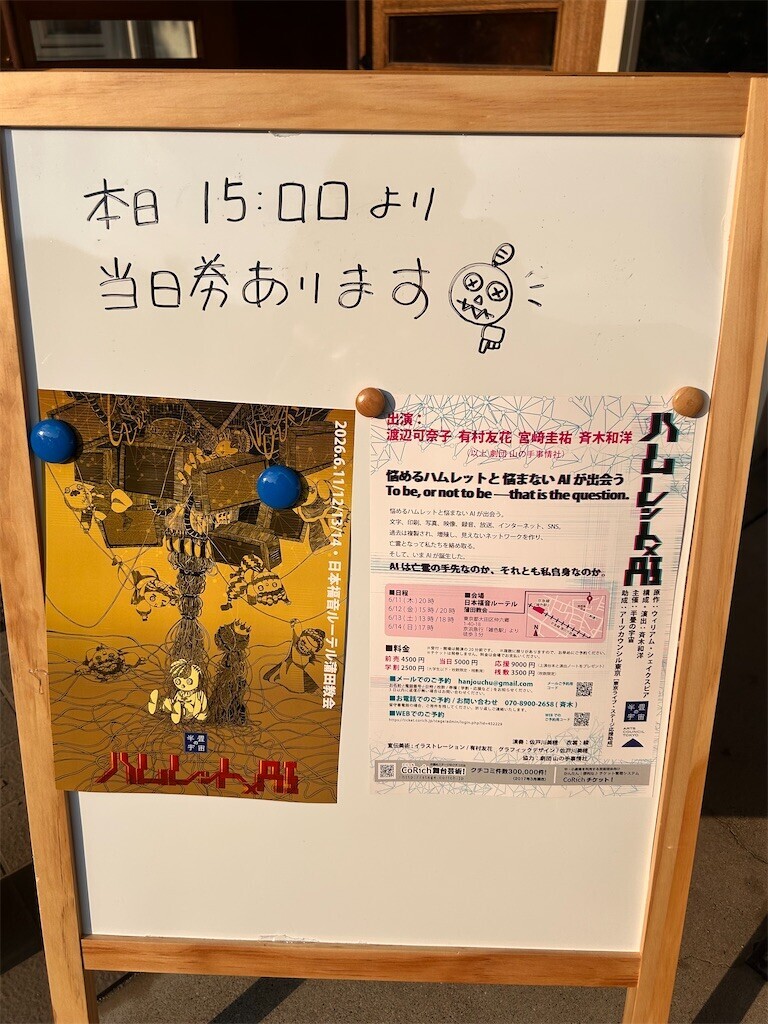 本日 15:00より
当日券あります
2026.6.11/12/13/14・日本福音ルーテル蒲田教会
半畳の宇宙
ハムレット×AI
出演：
渡辺可奈子 有村友花 宮崎圭祐 斉木和洋
（以上劇団 山の手事情社）
ハムレット×AI
悩めるハムレットと悩まない AI が出会う
To be, or not to be —that is the question.
悩めるハムレットと悩まない AI が出会う。
文字、印刷、写真、映像、録音、放送、インターネット、SNS。
過去は複製され、増殖し、見えないネットワークを作り、
亡霊となって私たちを絡め取る。
そして、いま AI が誕生した。
AI は亡霊の手先なのか、それとも私自身なのか。
原作：ウィリアム・シェイクスピア
構成・演出：斉木和洋
主催：半畳の宇宙
助成：アーツカウンシル東京
■日程
6/11（木）20 時
6/12（金）15 時 / 20 時
6/13（土）13 時 / 18 時
6/14（日）17 時
■会場
日本福音ルーテル
蒲田教会
■料金
前売 4500 円 当日 5000 円 応援 9000 円
学割 2500 円 桟敷 3500 円
■メールでのご予約 hanjouchu@gmail.com
■お電話でのご予約 / お問い合わせ 070-8900-2658（斉木）
■WEBでのご予約
半畳の宇宙
ARTS COUNCIL TOKYO
演奏：佐戸川美穂 衣裳：緑
宣伝美術：イラストレーション / 有村友花 グラフィックデザイン / 佐戸川美穂
協力：劇団 山の手事情社
CoRich舞台芸術！ クチコミ件数300,000件！
CoRich チケット！